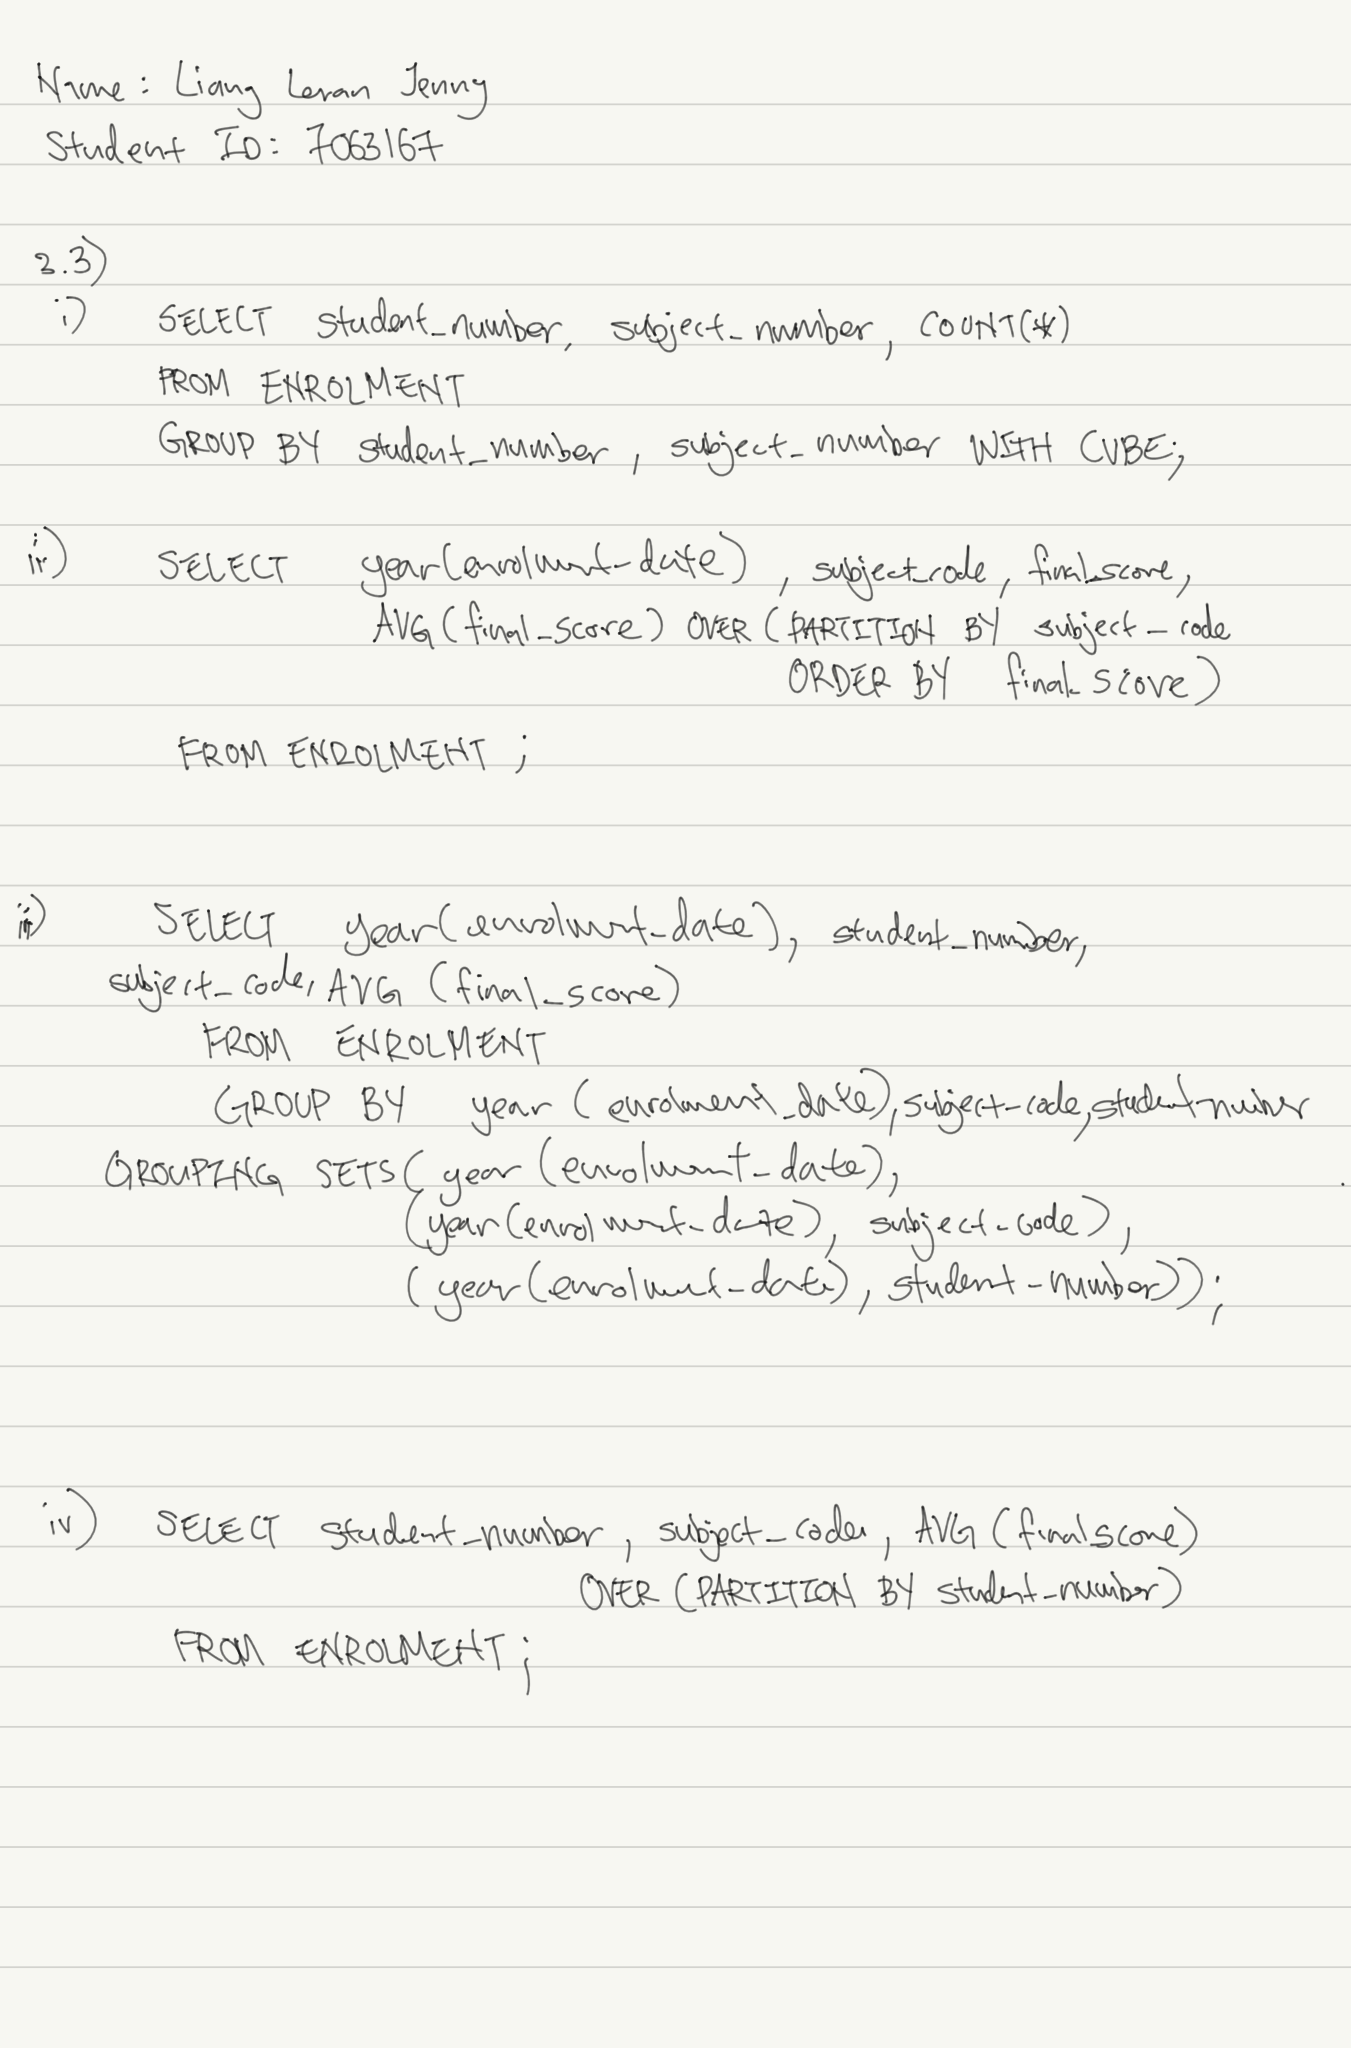 Name: Liang Leran Jenny
Student ID: 7063167
2.3)
i) SELECT student_number, subject_number, COUNT(*)
FROM ENROLMENT
GROUP BY student_number, subject_number WITH CUBE;
ii) SELECT year(enrolment_date), subject_code, final_score,
AVG(final_score) OVER(PARTITION BY subject_code
ORDER BY final_score)
FROM ENROLMENT;
iii) SELECT year(enrolment_date), student_number,
subject_code, AVG(final_score)
FROM ENROLMENT
GROUP BY year(enrolment_date), subject_code, student_number
GROUPING SETS(year(enrolment_date),
(year(enrolment_date), subject_code),
(year(enrolment_date), student_number));
iv) SELECT student_number, subject_code, AVG(finalscore)
OVER(PARTITION BY student_number)
FROM ENROLMENT;